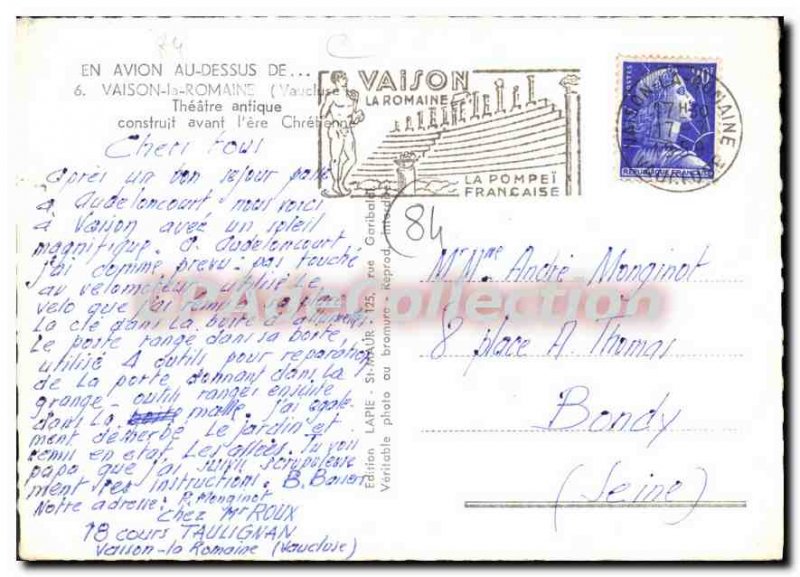 EN AVION AU-DESSUS DE...
6. VAISON-la-ROMAINE (Vaucluse)
Théâtre antique
construit avant l'ère Chrétienne
VAISON
LA ROMAINE
LA POMPEÏ
FRANÇAISE
VAISON-LA-ROMAINE
17 H 30
17
VAUCLUSE
POSTES
20F
REPUBLIQUE FRANÇAISE
Chers tous
Après un bon sejour passé
à Audeloncourt nous voici
à Vaison avec un soleil
magnifique. A Audeloncourt
j'ai comme prevu: pas touché
au velomoteur, utilisé le
velo que j'ai remis sa place
La clé dans la boite à allumettes
Le poste rangé dans sa boite,
utilisé 4 outils pour reparation
de la porte donnant dans la
grange - outils rangés ensuite
dans la malle. j'ai égale-
ment désherbé le jardin et
remis en etat les allées. Tu vois
papa que j'ai suivi scrupuleuse
ment tes instructions. B. Baisers
Notre adresse: P. Monginot
Chez Mr ROUX
18 cours TAULIGNAN
Vaison-la Romaine (Vaucluse)
Edition LAPIE - St-MAUR - 125, rue Garibaldi
Véritable photo au bromure - Reprod. interdite
84
Mr Mme André Monginot
8 place A. Thomas
Bondy
(Seine)
CPADeCollection